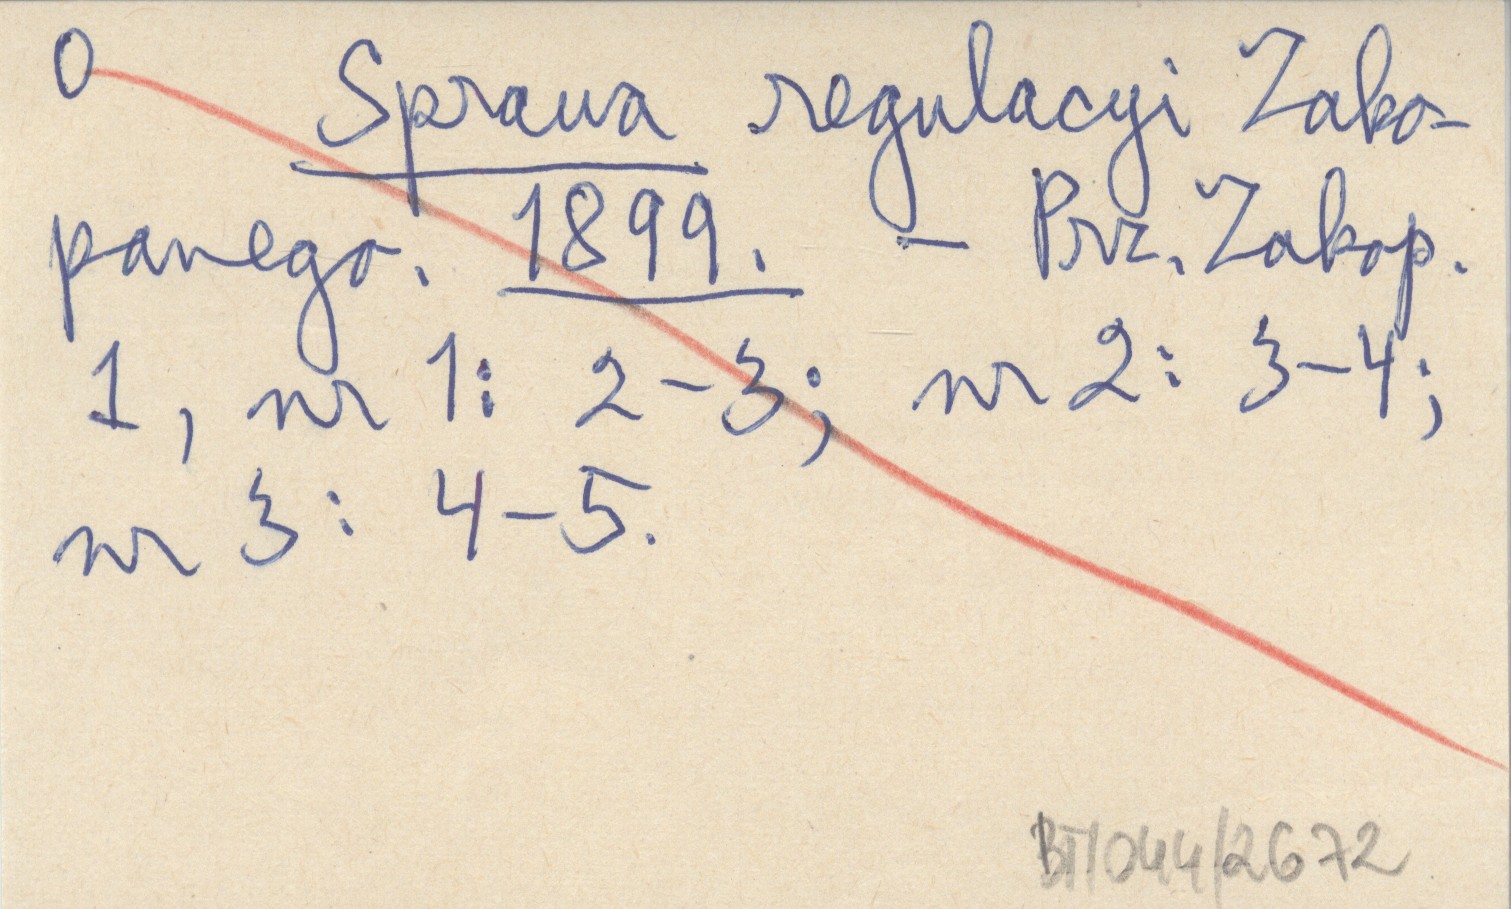 0 Sprawa regulacyi Zako-
panego. 1899. - Prz. Zakop.
1, nr 1: 2-3; nr 2: 3-4;
nr 3: 4-5.
BT/044/2672